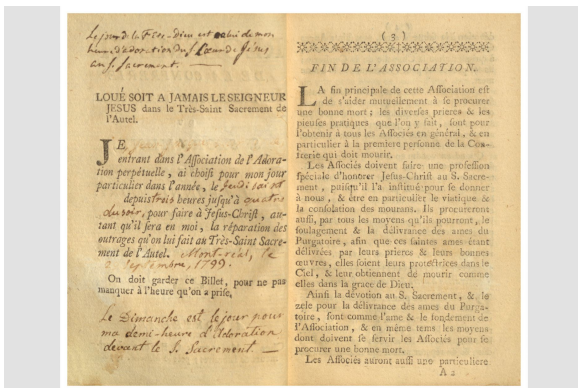 Le jour de la Fête-dieu est celui de mon
heure d'adoration du S. Cœur de Jésus
au S. Sacrement. —
LOUÉ SOIT A JAMAIS LE SEIGNEUR
JESUS dans le Très-Saint Sacrement de
l'Autel.
JE,
entrant dans l'Association de l'Adora-
tion perpétuelle, ai choisi pour mon jour
particulier dans l'année, le Jeudi saint
depuis trois heures jusqu'à quatre
du soir, pour faire à Jesus-Christ, au-
tant qu'il sera en moi, la réparation des
outrages qu'on lui fait au Très-Saint Sacre-
ment de l'Autel. Mont-real, le
septembre, 1799.
On doit garder ce Billet, pour ne pas
manquer à l'heure qu'on a prise,
Le Dimanche est le jour pour
ma demi-heure d'adoration
devant le S. Sacrement —
( 3 )
FIN DE L'ASSOCIATION.
LA fin principale de cette Association est
de s'aider mutuellement à se procurer
une bonne mort ; les diverses prieres & les
pieuses pratiques que l'on y fait, sont pour
l'obtenir à tous les Associés en général, & en
particulier à la premiere personne de la Con-
frerie qui doit mourir.
Les Associés doivent faire une profession
spéciale d'honorer Jesus-Christ au S. Sacre-
ment, puisqu'il l'a institué pour se donner
à nous, & être en particulier le viatique &
la consolation des mourans. Ils procureront
aussi, par tous les moyens qu'ils pourront, le
soulagement & la délivrance des ames du
Purgatoire, afin que ces saintes ames étant
délivrées par leurs prieres & leurs bonnes
œuvres, elles soient leurs protectrices dans le
Ciel, & leur obtiennent de mourir comme
elles dans la grace de Dieu.
Ainsi la dévotion au S. Sacrement, & le
zele pour la délivrance des ames du Purga-
toire, sont comme l'ame & le fondement de
l'Association, & en même tems les moyens
dont doivent se servir les Associés pour se
procurer une bonne mort.
Les Associés auront aussi une particuliere
A 2